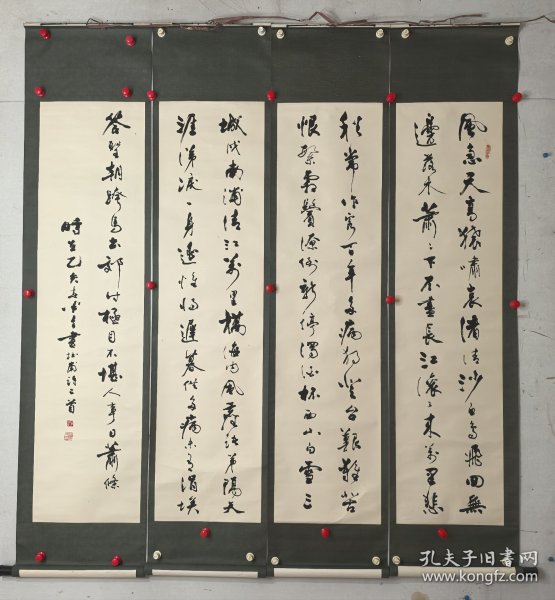 風急天高猿嘯哀渚清沙白鳥飛回無
邊落木蕭〻下不盡長江滾〻來萬里悲
秋常作客百年多病獨登台艱難苦
恨繁霜鬢潦倒新停濁酒杯西山白雪三
城戍南浦清江萬里橋海内風塵諸弟隔天
涯涕淚一身遥惟將遲暮供多病未有涓埃
答聖朝跨馬出郊时極目不堪人事日蕭條
時在乙亥春書杜甫詩二首
孔夫子旧书网
www.kongfz.com